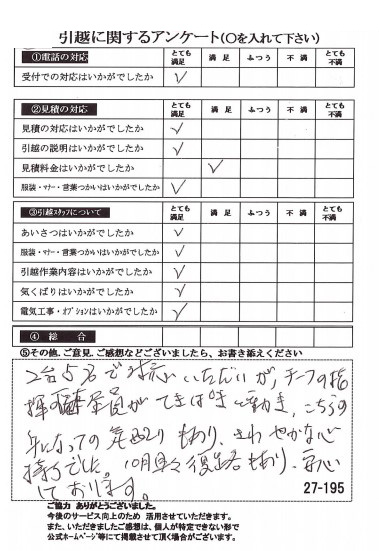 引越に関するアンケート(〇を入れて下さい)
①電話の対応 とても満足 満足 ふつう 不満 とても不満
受付での対応はいかがでしたか ✓
②見積の対応 とても満足 満足 ふつう 不満 とても不満
見積の対応はいかがでしたか ✓
引越の説明はいかがでしたか ✓
見積料金はいかがでしたか ✓
服装・マナー・言葉つかいはいかがでしたか ✓
③引越スタッフについて とても満足 満足 ふつう 不満 とても不満
あいさつはいかがでしたか ✓
服装・マナー・言葉つかいはいかがでしたか ✓
引越作業内容はいかがでしたか ✓
気くばりはいかがでしたか ✓
電気工事・オプションはいかがでしたか ✓
④総合
⑤その他、ご意見、ご感想などございましたら、お書き添えください
2台5名で対応いただいが、チーフの指
揮の 業員がてきぱきと動き、こちらの
気配りもあり、さわやかな心
持ちでした。10月 復 もあり、安心
しております。
27-195
ご協力 ありがとうございました。
今後のサービス向上のため 活用させていただきます。
また、いただきましたご感想は、個人が特定できない形で
公式ホームページ等にて掲載させて頂く場合がございます。